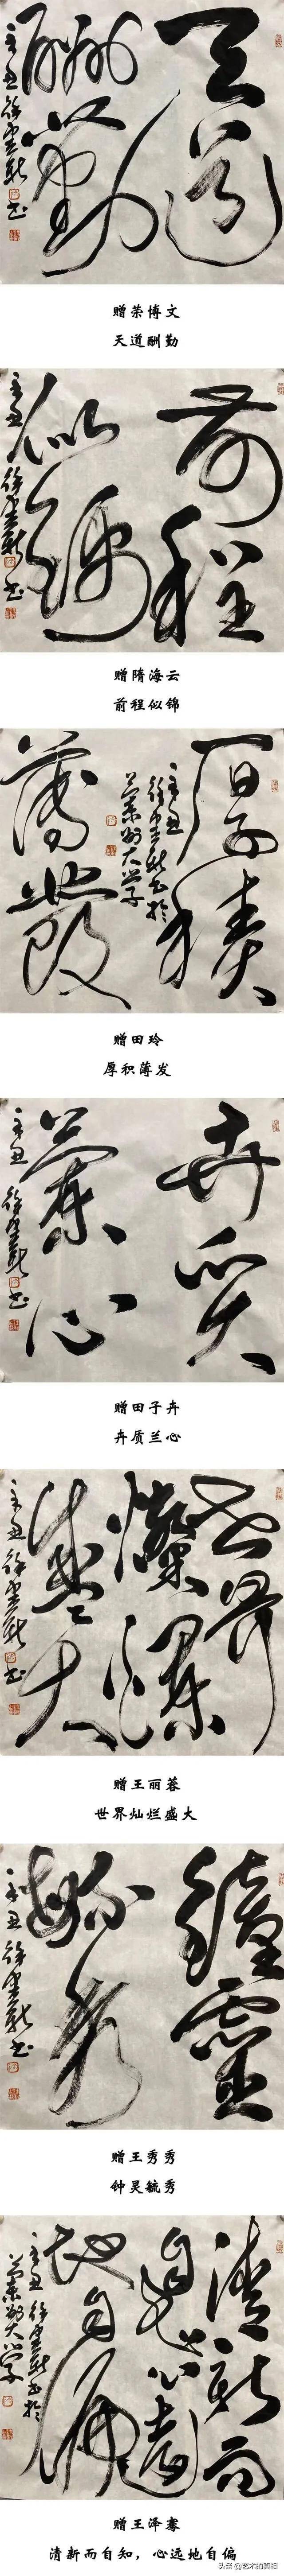 天道
酬勤
辛丑徐
书
赠荣博文
天道酬勤
前程
似錦
辛丑 徐
书
赠隋海云
前程似锦
厚積
辛丑
徐
书於
蘭州大学
薄發
赠田玲
厚积薄发
卉質
蘭心
辛丑 徐
书
赠田子卉
卉质兰心
世界
燦爛
盛大
辛丑 徐
书
赠王丽蓉
世界灿烂盛大
鍾靈
毓秀
辛丑 徐
书
赠王秀秀
钟灵毓秀
清新而
自知心遠
地自偏
辛丑 徐
书於
蘭州大学
赠王泽骞
清新而自知，心远地自偏
头条@艺术的真相